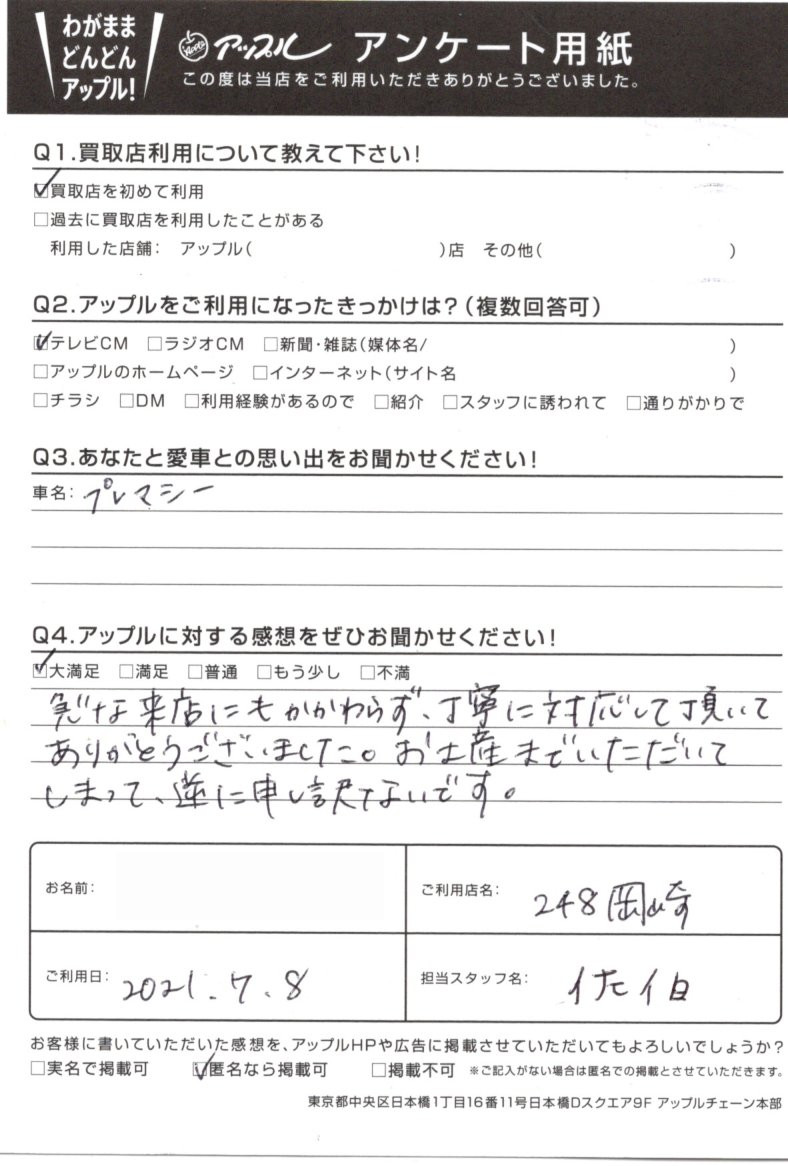 わがまま
どんどん
アップル!
Apple アップル アンケート用紙
この度は当店をご利用いただきありがとうございました。
Q1.買取店利用について教えて下さい!
☑買取店を初めて利用
□過去に買取店を利用したことがある
利用した店舗: アップル( )店 その他( )
Q2.アップルをご利用になったきっかけは?(複数回答可)
☑テレビCM □ラジオCM □新聞・雑誌(媒体名/ )
□アップルのホームページ □インターネット(サイト名 )
□チラシ □DM □利用経験があるので □紹介 □スタッフに誘われて □通りがかりで
Q3.あなたと愛車との思い出をお聞かせください!
車名: プレマシー
Q4.アップルに対する感想をぜひお聞かせください!
☑大満足 □満足 □普通 □もう少し □不満
急な来店にもかかわらず、丁寧に対応して頂いて
ありがとうございました。お土産までいただいて
しまって、逆に申し訳ないです。
お名前:
ご利用店名: 248岡崎
ご利用日: 2021.7.8
担当スタッフ名: 佐伯
お客様に書いていただいた感想を、アップルHPや広告に掲載させていただいてもよろしいでしょうか?
□実名で掲載可 ☑匿名なら掲載可 □掲載不可 ※ご記入がない場合は匿名での掲載とさせていただきます。
東京都中央区日本橋1丁目16番11号日本橋Dスクエア9F アップルチェーン本部